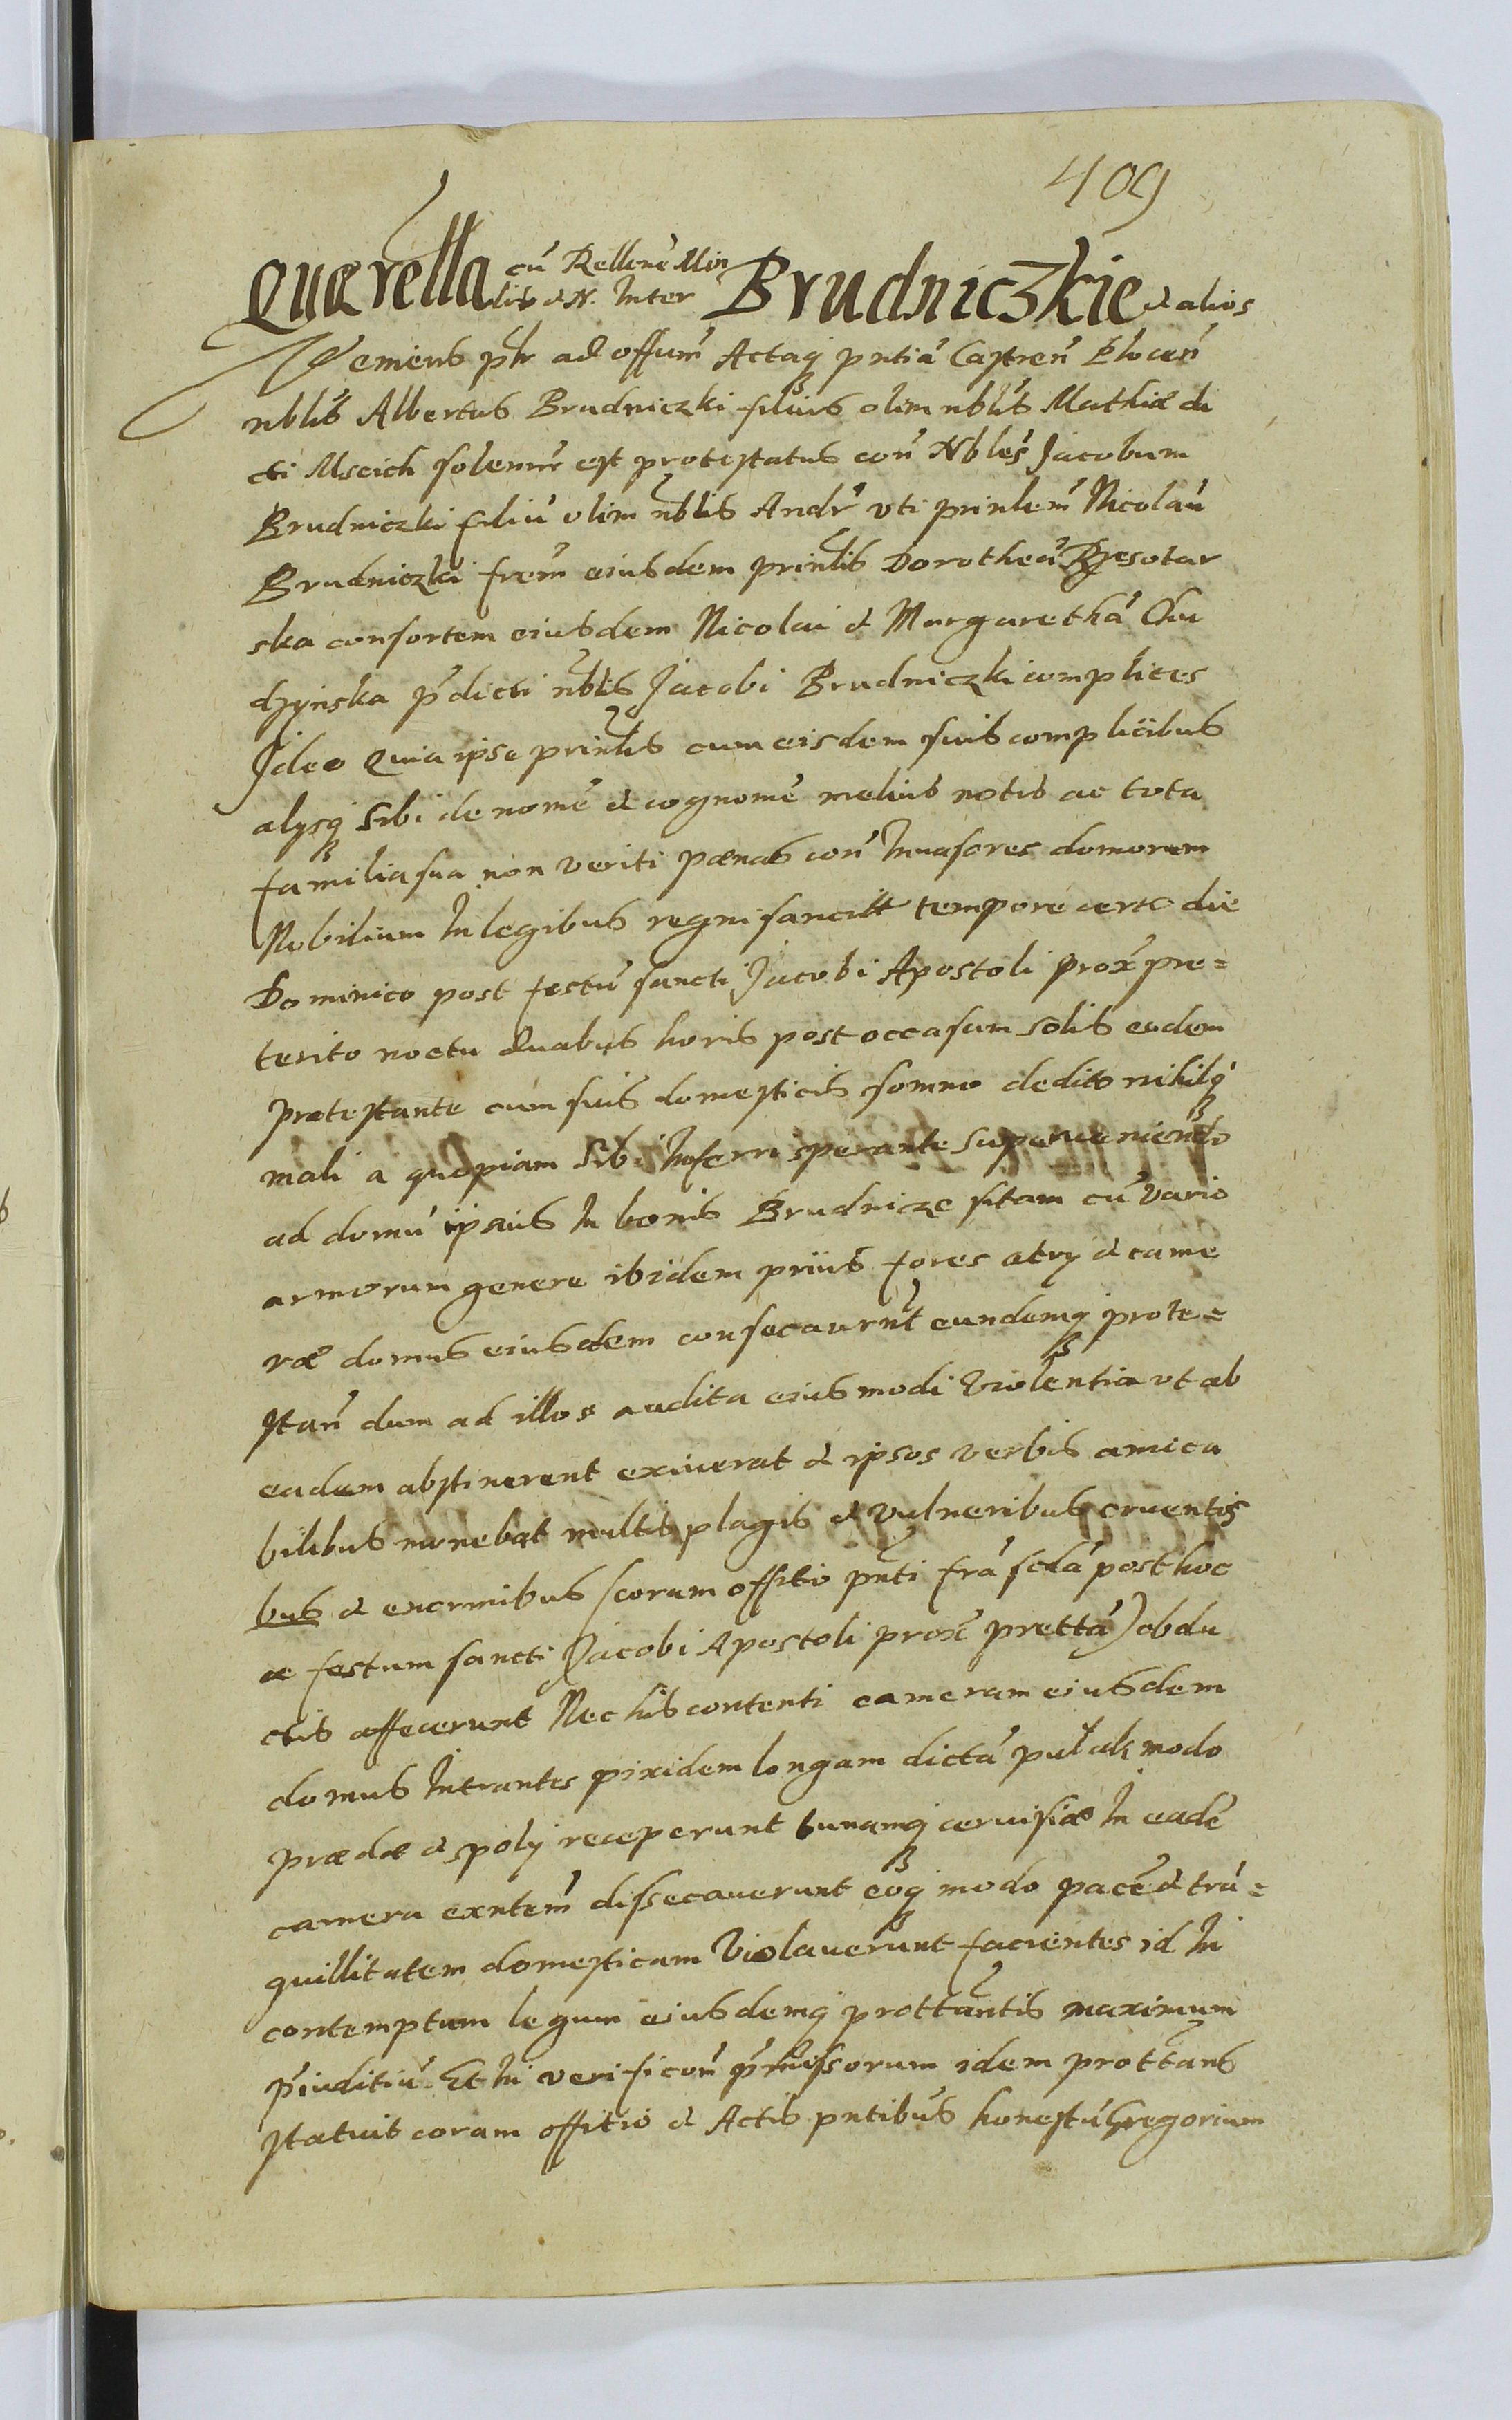 409
Querella cū Rellone Min
lis & N. Inter Brudniczkie & alios
Veniens plr ad offum Actaq3 pntia Castren Plocen
nblis Albertus Brudniczki filius olim nblis Mathiæ di
cti Mscich solenr est protestatus con Nbles Jacobum
Brudniczki filiū olim nblis Andr uti prinlem Nicolaū
Brudniczki frem eiusdem prinlis Dorotheā
ska consortem eiusdem Nicolai & Margarethā Chu
dzynska pdicti nblis Jacobi Brudniczki complices
Ideo Quia ipse prinlis cum eisdem suis complicibus
alysq3 sibi de nome & cognome melius notis ac tota
familia sua non veriti pænas con Inuasores domorum
Nobilium In legibus regni sancitt tempore certo die
Dominico post festū sancti Jacobi Apostoli prox pre=
terito noctu duabus horis post occasum solis eodem
protestante cum suis domesticis somno dedito nihilq3
mali a quopiam sibi Inferri sperante superueniendo
ad domū ipsius In bonis Brudnicze sitam cū vario
armorum genere ibidem prius fores atry & came
ræ domus eiusdem consecaurnt eundemq3 prote=
stan dum ad illos audita eiusmodi violentia ut ab
eadem abstinerent exiuerat & ipsos verbis amica
bilibus monebat multis plagis & vulneribus cruentis
bus & enormibus (coram offitio pnti fra scda post hoc
æ festum sancti Jacobi Apostoli prox prettā) obdu
ctis affecerunt Nec his contenti cameram eiusdem
domus Intrantes pixidem longam dictā pułak modo
prædæ & spoly receperunt tunamq3 ceruisiæ In eadē
camera exntem dissecauerunt eoq3 modo pacē & trā=
quillitatem domesticam violauerunt facientes id In
contemptum legum eiusdemq3 prottantis maximum
piuditiū. Et In verificon pmissorum idem prottans
statuit coram offitio & Actis pntibus honestū Gregorium